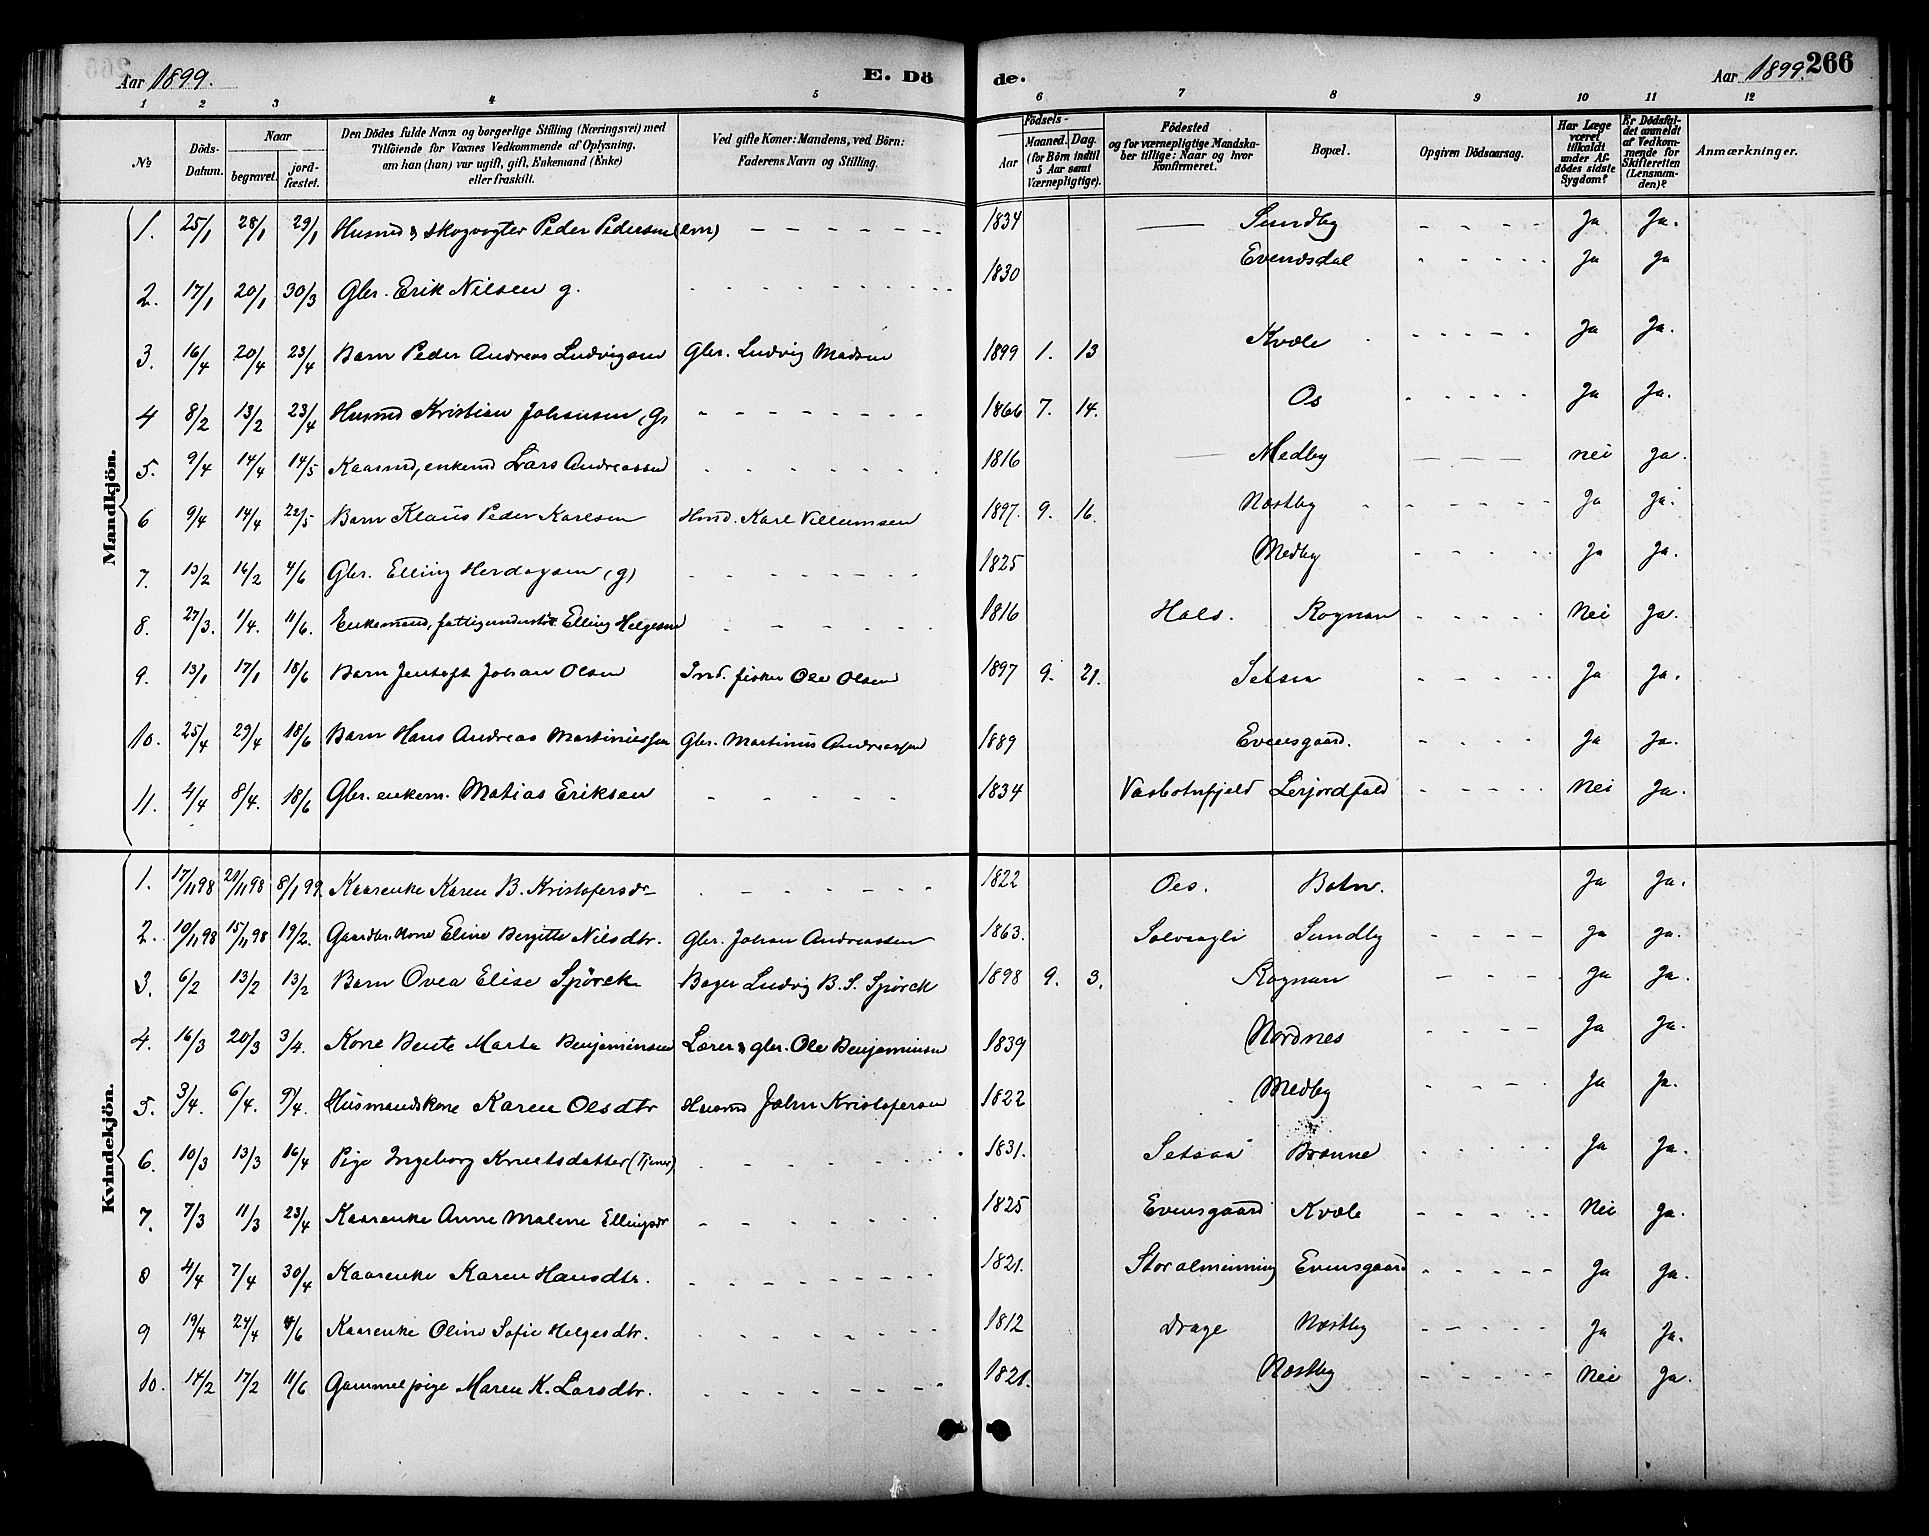 Aar 1899. E. Dö de. Aar 1899. 266
1 2 3 4 5 6 7 8 9 10 11 12
No Döds-Datum. Naar begravet. jordfæstet. Den Dödes fulde Navn og borgerlige Stilling (Næringsvei) med Tilföiende for Voxnes Vedkommende af Oplysning, om han (hun) var ugift, gift, Enkemand (Enke) eller fraskilt. Ved gifte Koner: Mandens, ved Börn: Faderens Navn og Stilling. Födsels- Aar Maaned. Dag. (for Börn indtil 5 Aar samt Værnepligtige). Födested og for værnepligtige Mandskaber tillige: Naar og hvor konfirmeret. Bopæl. Opgiven Dödsaarsag. Har Læge været tilkaldt under Afdödes sidste Sygdom? Er Dödsfaldet anmeldt af Vedkommende for Skifteretten (Lensmanden)? Anmærkninger.
Mandkjön.
1. 25/1 28/1 29/1 Husmd & skogvogter Peder Pedersen (em) - - - - - - 1834 — Sundby - - - - Ja Ja.
2. 17/1 20/1 30/3 Gbr. Erik Nilsen g. - - - - - - 1830 Evensdal - - - - Ja Ja
3. 16/4 20/4 23/4 Barn Peder Andreas Ludvigsen Gbr. Ludvig Madsen 1899 1. 13 Kvæle - - - - Ja Ja.
4 8/2 13/2 23/4 Husmd Kristian Johansen, (g) - - - - - - 1866 7. 14. Os - - - - Ja Ja.
5. 9/4 14/4 14/5 Kaarmd, enkemd Lars Andreassen - - - - - - 1816 — Medby - - - nei Ja.
6 9/4 14/4 22/5 Barn Klaus Peder Karlsen Hmd. Karl Villumsen 1897. 9. 16. Næstby - - - - Ja Ja.
7. 13/2 16/2 4/6 Gbr. Elling Herdagsen (g) - - - - - - 1825 Medby - - - - Ja Ja.
8. 27/3. 1/4. 11/6. Enkemand, fattigunderst. Elling Helgesen - - - - - 1816 Hals. Rognan - - - - Nei Ja.
9. 13/1 17/1 18/6 Barn Jentoft Johan Olsen Ind. fisker Ole Olsen 1897 9. 21. Setsaa - - - - Ja Ja.
10. 25/4 29/4 18/6 Barn Hans Andreas Martinussen Gbr. Martinus Andreassen 1889 Evensgaard. - - - - Ja Ja.
11. 4/4 8/4. 18/6 Gbr. enkem. Matias Eriksen - - - - - 1834 Vasbotnfjeld Lerjordfald - - - - Nei Ja.
Kvindekjön.
1. 17/11 98 21/11 98 8/1 99. Kaarenke Karen B. Kristofersdr - - - - - - 1822 Oes. Botn. Ja Ja.
2. 10/11 98 15/11 98 19/2. Gaardbr. kone Eline Bergitte Nilsdtr. Gbr. Johan Andreassen 1863. Solvaagli Sundby - - - - Ja Ja.
3. 6/2 13/2 13/2 Barn Ovea Elise Spörck Bager Ludvig B. S. Spörck 1898 9. 3. Rognan - - - - Ja Ja.
4. 16/3 20/3 3/4. Kone Berte Marta Benjaminsen Lærer & gbr. Ole Benjaminsen 1839 Nordnes - - - - Ja Ja.
5. 3/4. 6/4. 9/4. Husmandskone Karen Olsdtr Husmd John Kristofersen 1822 Medby - - - - Ja Ja.
6. 10/3 13/3 16/4 Pige Ingeborg Knutsdatter (Tjener) - - - - - 1831. Setsaa Brænne - - - - Ja Ja.
7. 7/3 11/3 23/4 Kaarenke Anne Malene Ellingsdr - - - - - - 1825 Evensgaard Kvæle - - - - Nei Ja.
8 4/4 7/4 30/4 Kaarenke Karen Hansdtr. - - - - - - 1821. Storalmenning Evensgaard - - - - Ja Ja.
9 19/4 24/4 4/6 Kaarenke Oline Sofie Helgesdtr. - - - - - - 1812 Drage Næstby - - - - Ja Ja.
10. 14/2 17/2 11/6 Gammel pige Maren K. Larsdtr. - - - - - - 1821. Næstby - - - - Nei Ja.